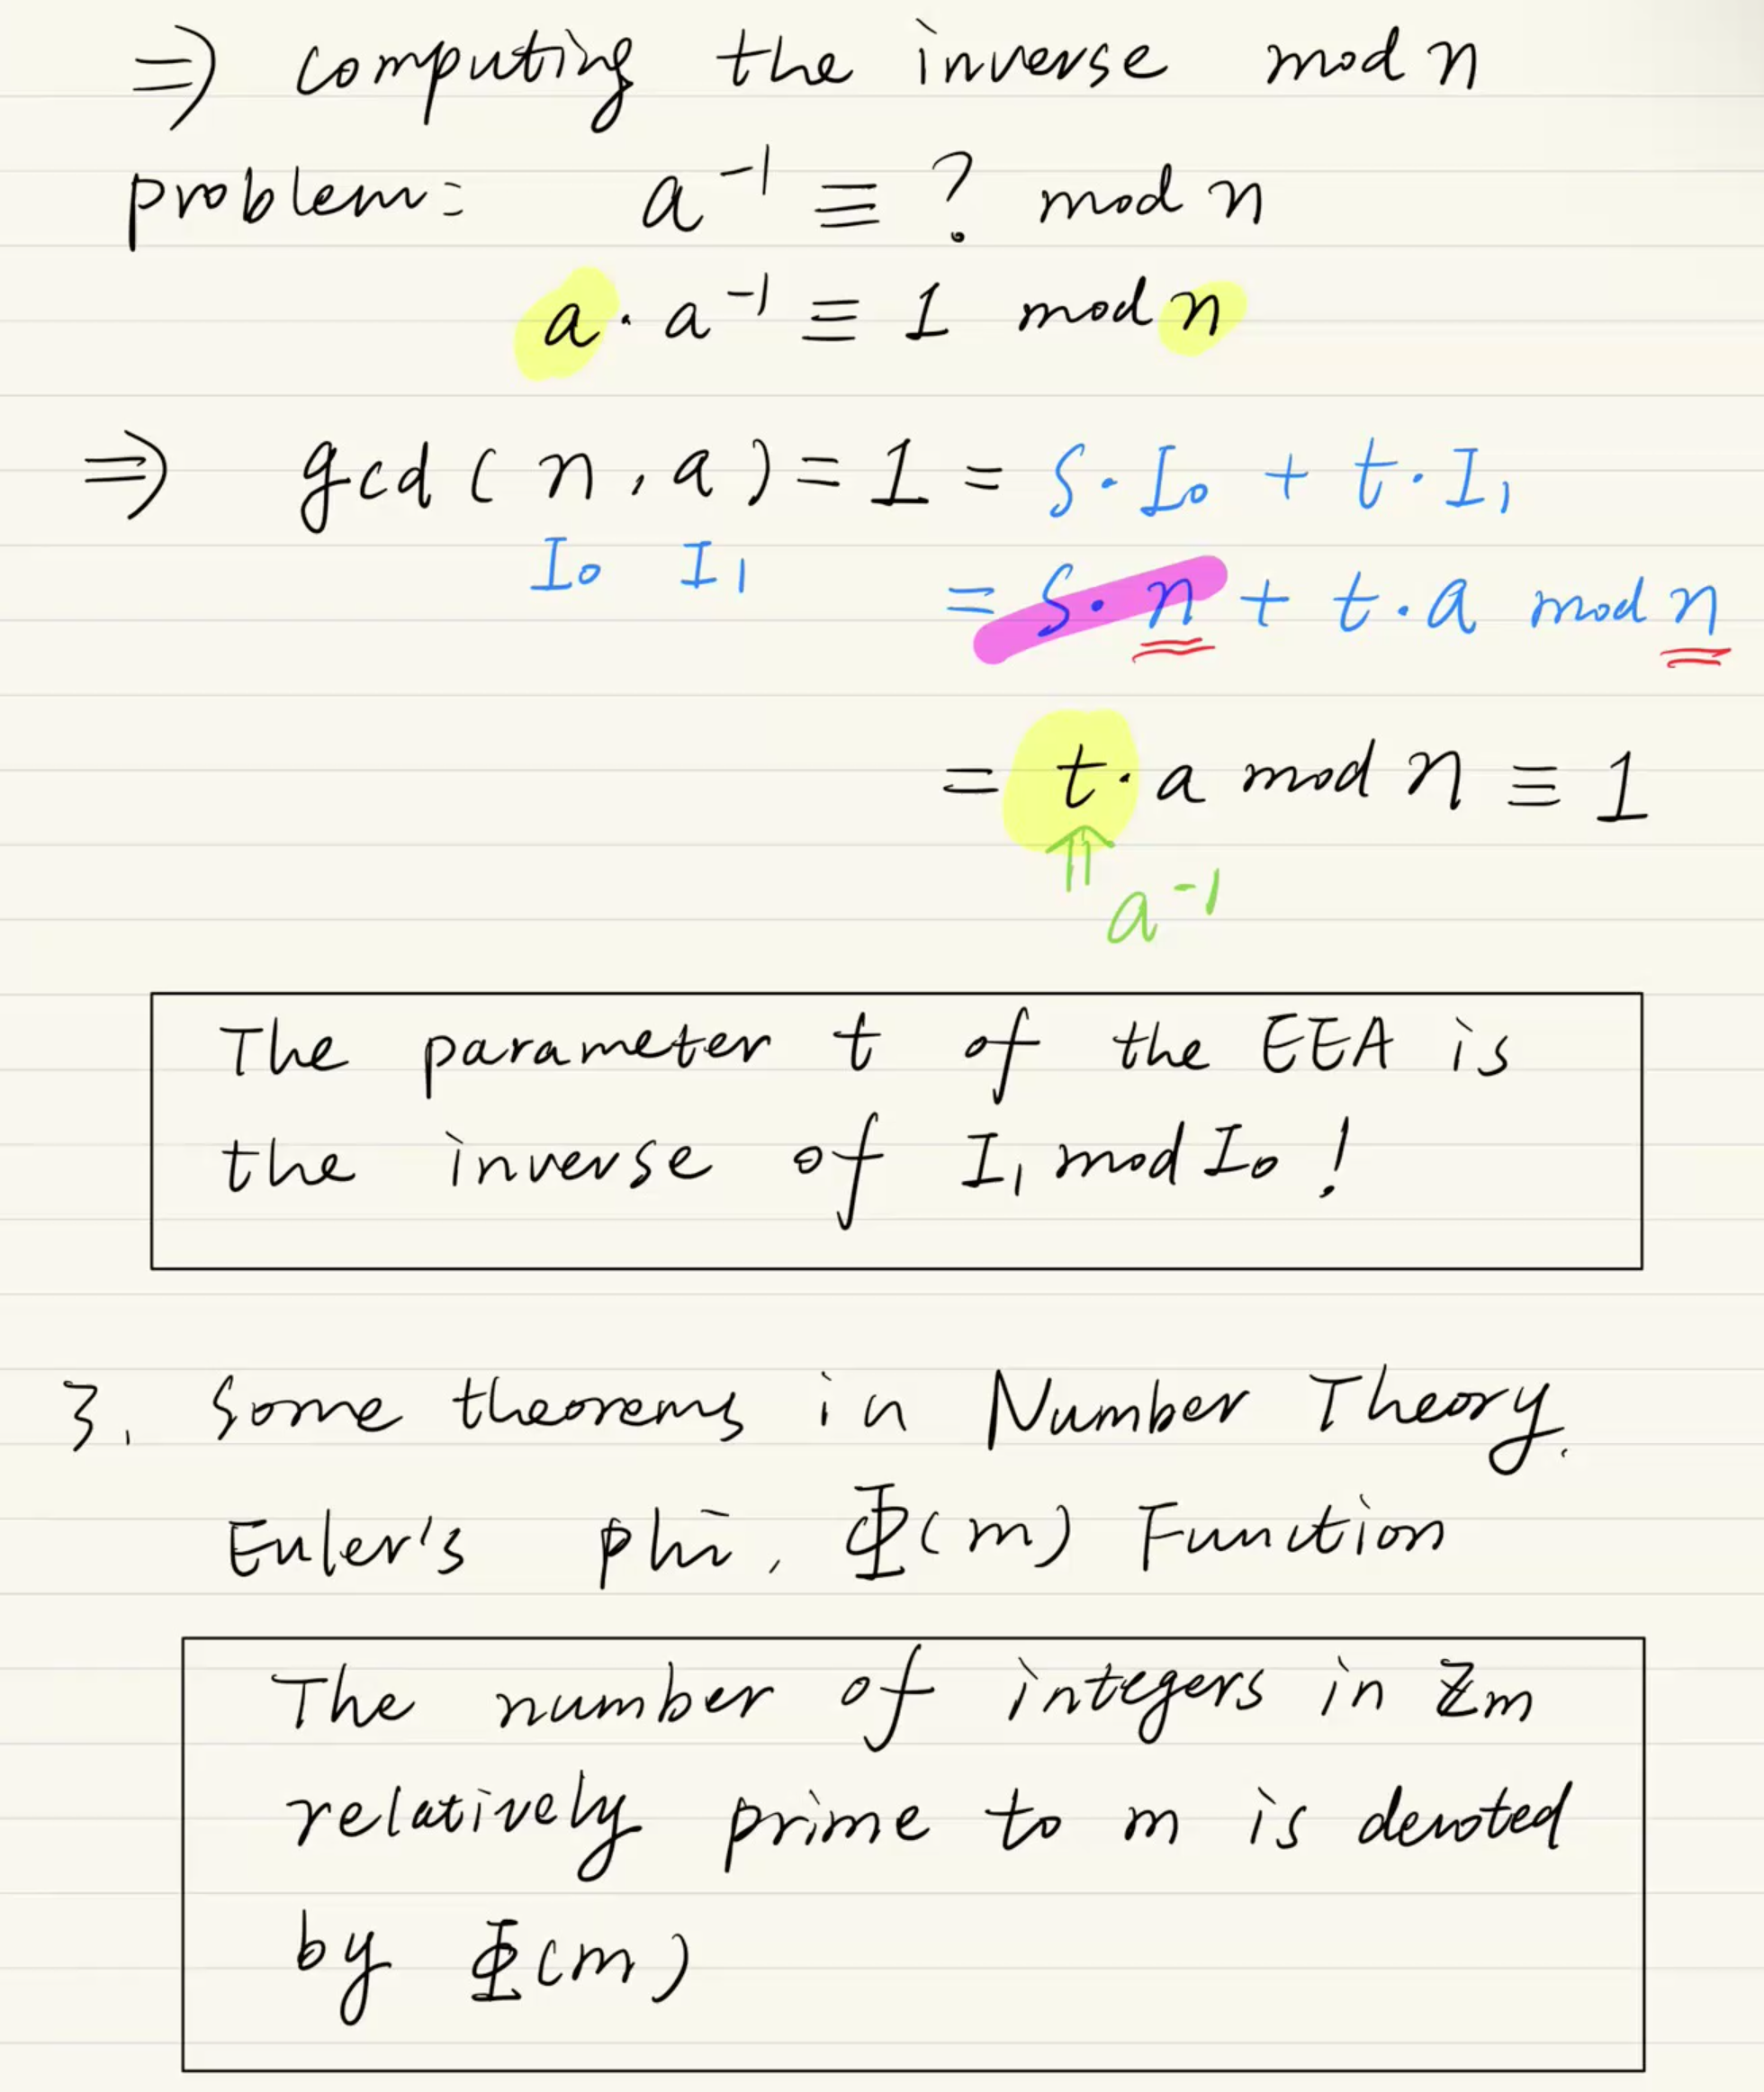 ⇒ computing the inverse mod n
problem: a⁻¹ ≡ ? mod n
a · a⁻¹ ≡ 1 mod n
⇒ gcd ( n , a ) = 1 = S · I₀ + t · I₁
I₀ I₁ = S · n + t · a mod n
= t · a mod n ≡ 1
⇑ a⁻¹
The parameter t of the EEA is
the inverse of I₁ mod I₀ !
3. Some theorems in Number Theory.
Euler's phi, Φ(m) Function
The number of integers in Zm
relatively prime to m is denoted
by Φ(m)